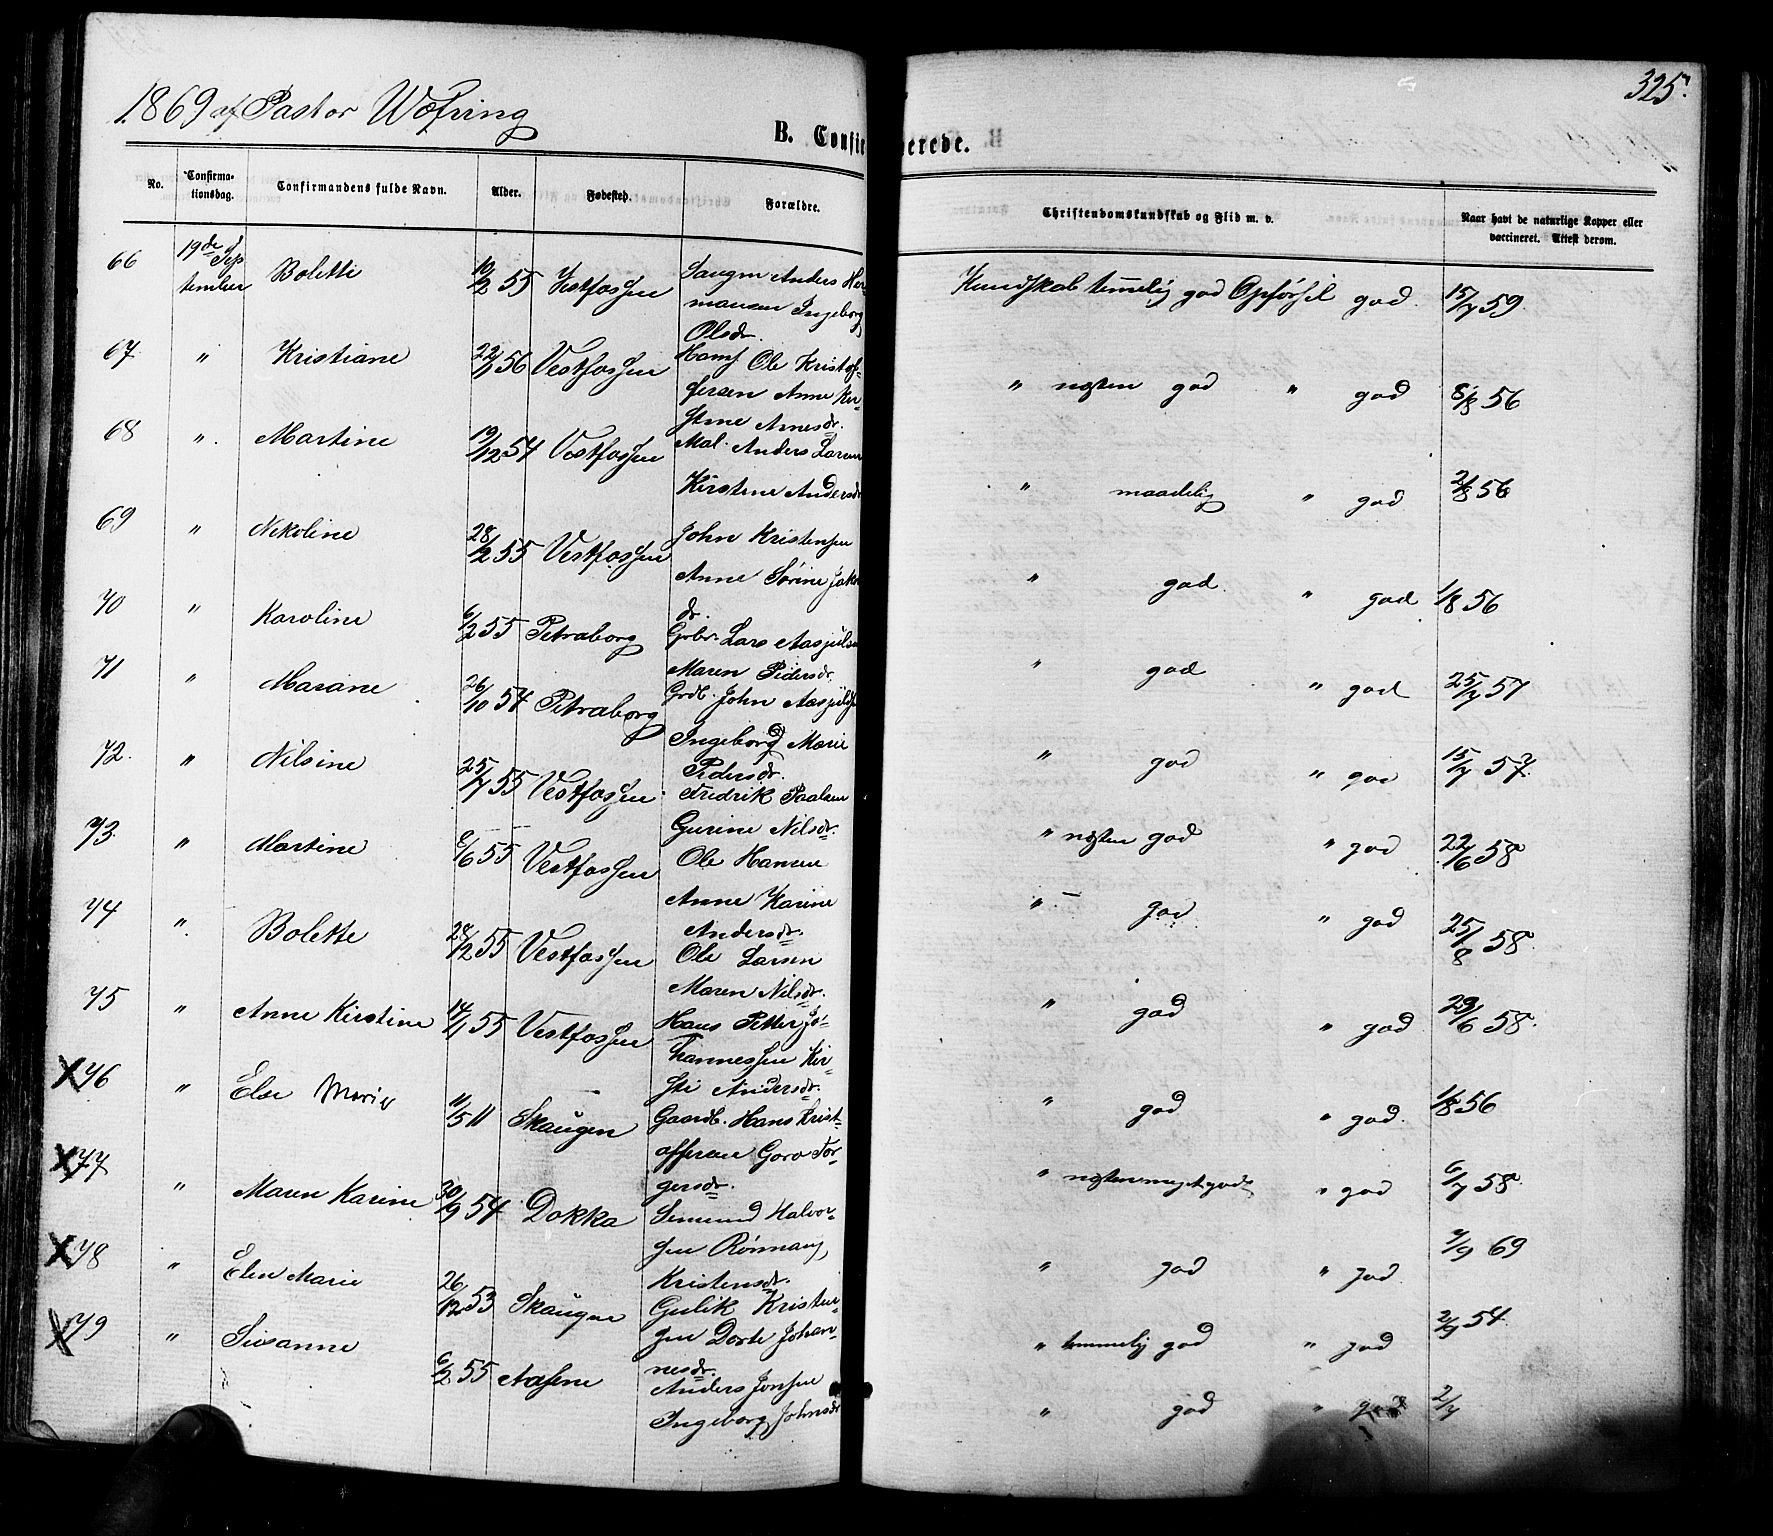 1869 af Pastor Wefring
325.
B. Confir
erede.
No. Confirma-
tionsdag. Confirmandens fulde Navn. Alder. Fødested. Forældre. Christendomskundskab og Flid m. v. Naar havt de naturlige Kopper eller
vaccineret. Attest derom.
66 19de Sep
tember Bolette 10/2 55 Vestfossen Saugm Anders Her
mansen Ingeborg
Olsdr. Kundskab temmelig god Opførsel god. 15/7 59
67 " Kristiane 22/1 56 Vestfossen Ole Kristof-
fersen Anne Kir-
stine Arnesdr. " næsten god " god 8/8 56
68 " Martine 19/12 54 Vestfossen Mal. Anders Larsen
Kirstine Andersdr " maadelig " god 2/8 56
69 " Nikoline 28/2 55 Vestfossen John Kristensen
Anne Sørine Jak
dr. " god. " god 1/8 56
70 " Karoline 6/2 55 Petraborg Grbr. Lars Aasjulsen
Maren Pedersdr. " god " god 25/7 57
71 " Marane 26/10 54 Petraborg Grdb. John Aasjuls
Ingeborg Marie
Pedersdr. " god " god 15/7 57
72. " Nilsine 25/7 55 Vestfossen Fredrik Paalsen
Gurine Nilsdr. " næsten god " god 22/6 58
73 " Martine 6/6 55 Vestfossen Ole Hansen
Anne Karine
Andersdr. " god " god 25/8 58
74 " Bolette 28/2 55 Vestfossen Ole Larsen
Maren Nilsdr. " god " god 29/6 58.
75 " Anne Kirstine 14/1 55 Vestfossen Hans Petter Jo-
hannessen Kir-
sti Andersdr. " god " god. 1/8 56
X 76 " Else Marie 11/5 11 Skaugen Gaardb. Hans Krist-
offersen Goro Tor-
gersdr. " næsten meget god " god 6/7 58
X 77 " Maren Karine 30/9 54 Dokka Simund Halvor-
sen Rønnaug
Kristensdr. " god " god. 2/9 69
X 78 " Elen Marie 26/12 53 Skaugen Gulik Kristen-
sen Dorte Johan-
nesdr. " temmelig god " god 2/9 54
X 79 " Susanne 6/2 55 Aasene Anders Jonsen
Ingeborg Johnsdr " god " god 2/7